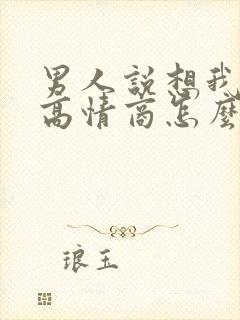 男人說想我
高情商怎麼
琅玉